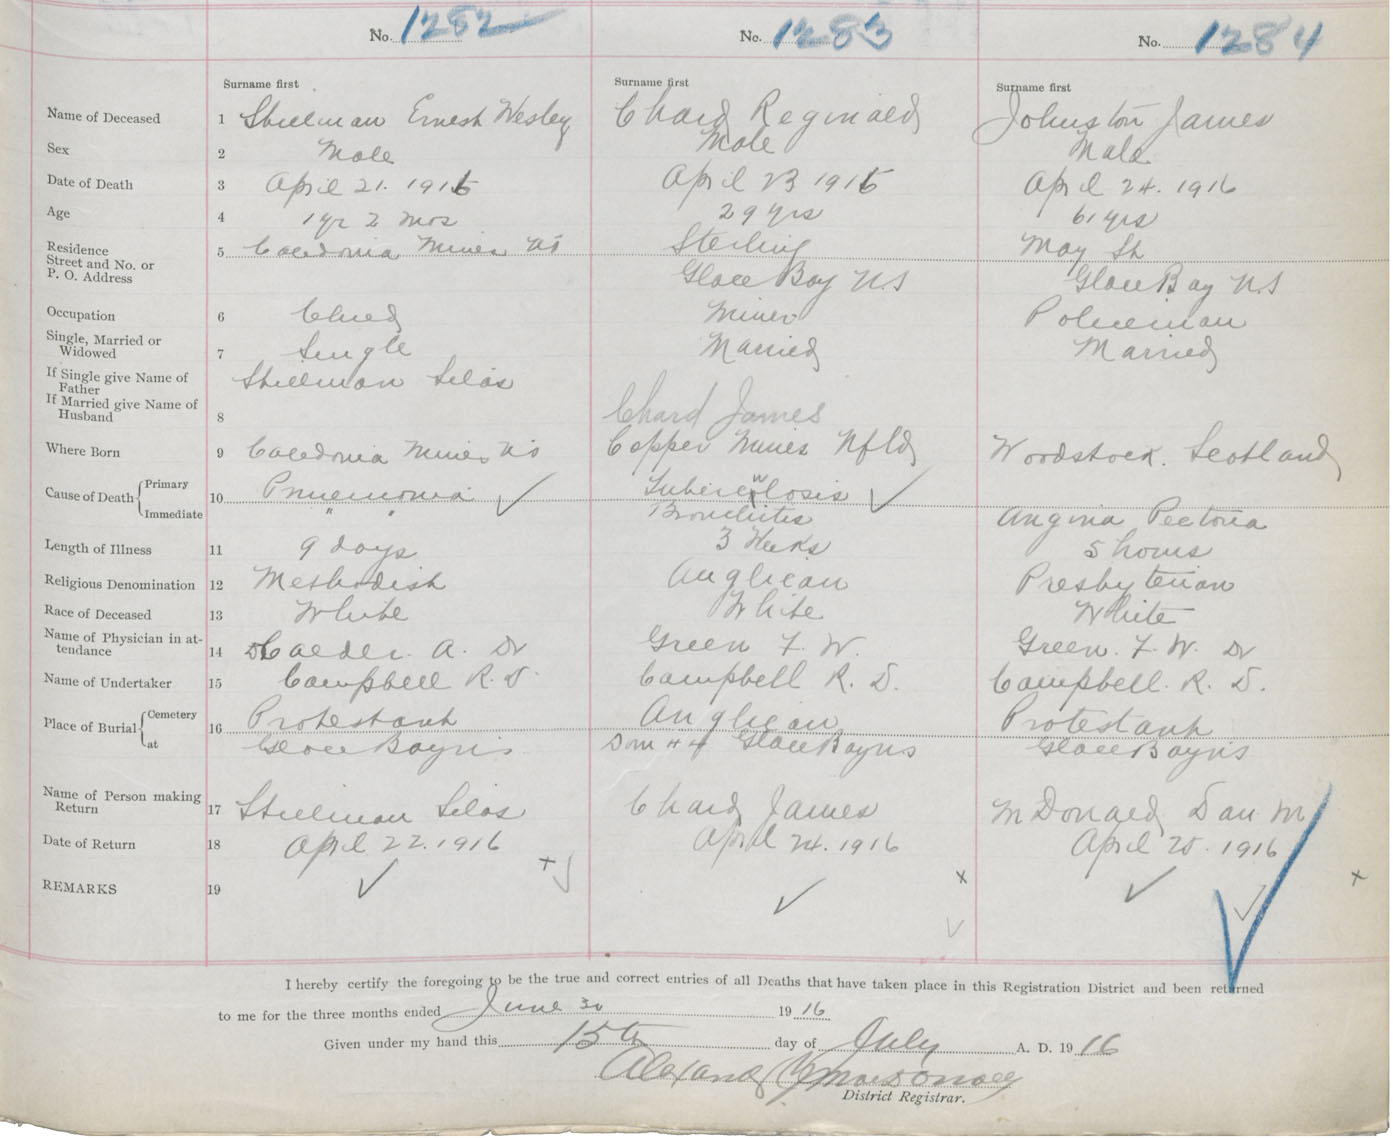 No. 1282 No. 1283 No. 1284
Surname first Surname first Surname first
Name of Deceased 1 Stillman Ernest Wesley Chard Reginald Johnston James
Sex 2 Male Male Male
Date of Death 3 April 21. 1916 April 23 1916 April 24. 1916
Age 4 1 yr 2 mos 29 yrs 61 yrs
Residence 5 Caledonia Mines NS Sterling May St
Street and No. or
P. O. Address Glace Bay N.S Glace Bay N.S
Occupation 6 Child Miner Policeman
Single, Married or
Widowed 7 Single Married Married
If Single give Name of
Father Stillman Silas
If Married give Name of
Husband 8 Chard James
Where Born 9 Caledonia Mines NS Copper Mines Nfld Woodstock. Scotland
Cause of Death Primary 10 Pnuemonia ✓ Tuberculosis ✓
Immediate " " Bronchites Angina Pectoria
Length of Illness 11 9 days 3 Weeks 5 hours
Religious Denomination 12 Methodist Anglican Presbyterian
Race of Deceased 13 White White White
Name of Physician in at-
tendance 14 Calder. A. Dr Green F. W. Green. F. W. Dr
Name of Undertaker 15 Campbell R. D. Campbell R. D. Campbell. R. D.
Place of Burial Cemetery 16 Protestant Anglican Protestant
at Glace Bay NS Dom # 4 Glace Bay NS Glace Bay NS
Name of Person making
Return 17 Stillman Silas Chard James McDonald Dan M
Date of Return 18 April 22. 1916 April 24. 1916 April 25. 1916
REMARKS 19 ✓ + ✓ ✓ x ✓ ✓ x
I hereby certify the foregoing to be the true and correct entries of all Deaths that have taken place in this Registration District and been returned
to me for the three months ended June 30 1916
Given under my hand this 15th day of July A. D. 1916
MacDonald
District Registrar.